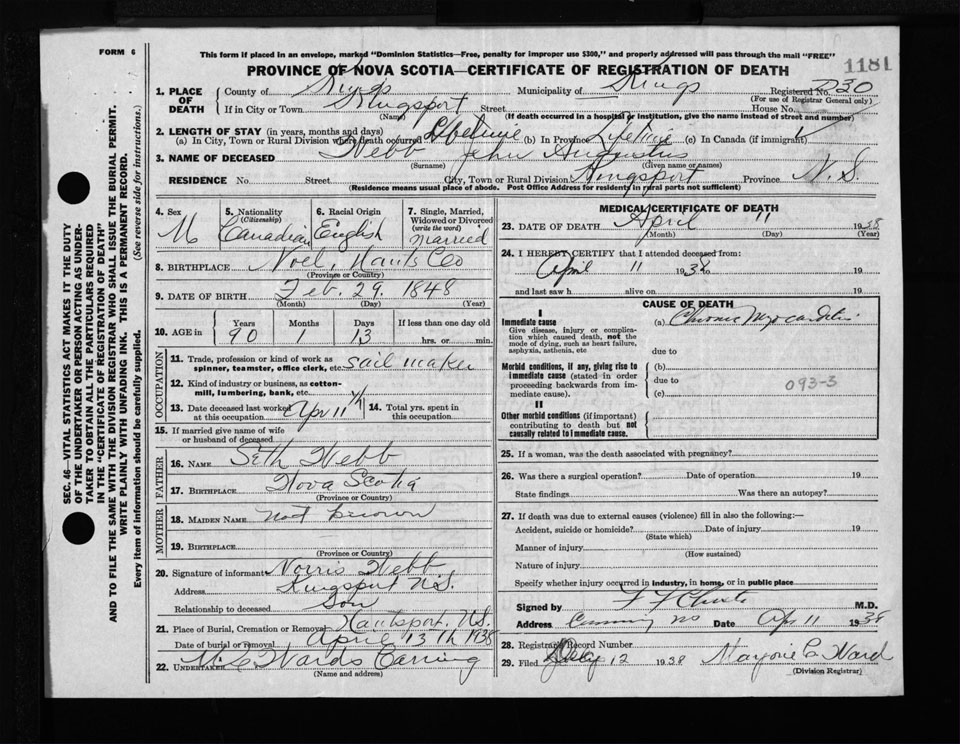 FORM 6
This form if placed in an envelope, marked "Dominion Statistics—Free, penalty for improper use $300," and properly addressed will pass through the mail "FREE"
1181
PROVINCE OF NOVA SCOTIA—CERTIFICATE OF REGISTRATION OF DEATH
1. PLACE OF DEATH
County of Kings Municipality of Kings Registered No. 230
(For use of Registrar General only)
If in City or Town Kingsport Street House No.
(Name) (If death occurred in a hospital or institution, give the name instead of street and number)
2. LENGTH OF STAY (in years, months and days)
(a) In City, Town or Rural Division where death occurred Lifetime (b) In Province Lifetime (c) In Canada (if immigrant)
3. NAME OF DECEASED Webb John Augustus
(Surname) (Given name or names)
RESIDENCE No. Street City, Town or Rural Division Kingsport Province N.S.
(Residence means usual place of abode. Post Office Address for residents in rural parts not sufficient)
4. Sex M
5. Nationality (Citizenship) Canadian
6. Racial Origin English
7. Single, Married, Widowed or Divorced (write the word) Married
8. BIRTHPLACE Noel, Hants Co
(Province or Country)
9. DATE OF BIRTH Feb. 29, 1848
(Month) (Day) (Year)
10. AGE in Years 90 Months 1 Days 13 If less than one day old hrs. or min.
OCCUPATION
11. Trade, profession or kind of work as spinner, teamster, office clerk, etc. sail maker
12. Kind of industry or business, as cotton-mill, lumbering, bank, etc.
13. Date deceased last worked at this occupation Apr 11
14. Total yrs. spent in this occupation
15. If married give name of wife or husband of deceased
FATHER
16. NAME Seth Webb
17. BIRTHPLACE Nova Scotia
(Province or Country)
MOTHER
18. MAIDEN NAME not known
19. BIRTHPLACE
(Province or Country)
20. Signature of informant Norris Webb
Address Kingsport N.S.
Relationship to deceased Son
21. Place of Burial, Cremation or Removal Hantsport, N.S.
Date of burial or removal April 13th 1938
22. UNDERTAKER
(Name and address)
MEDICAL CERTIFICATE OF DEATH
23. DATE OF DEATH April 11 1938
(Month) (Day) (Year)
24. I HEREBY CERTIFY that I attended deceased from:
April 11 1938 to 19
and last saw h alive on 19
CAUSE OF DEATH
I
Immediate cause (a) Chronic Myocarditis
Give disease, injury or complication which caused death, not the mode of dying, such as heart failure, asphyxia, asthenia, etc
due to
Morbid conditions, if any, giving rise to immediate cause (stated in order proceeding backwards from immediate cause).
(b)
due to
093-3
(c)
II
Other morbid conditions (if important) contributing to death but not causally related to immediate cause.
25. If a woman, was the death associated with pregnancy?
26. Was there a surgical operation? Date of operation 19
State findings Was there an autopsy?
27. If death was due to external causes (violence) fill in also the following:—
Accident, suicide or homicide? Date of injury 19
(State which)
Manner of injury
(How sustained)
Nature of injury
Specify whether injury occurred in industry, in home, or in public place
Signed by M.D.
Address Canning NS Date Apr 11 1938
28. Registrar's Record Number
29. Filed 12 1938 Marjorie C. Ward
(Division Registrar)
SEC. 46—VITAL STATISTICS ACT MAKES IT THE DUTY OF THE UNDERTAKER OR PERSON ACTING AS UNDERTAKER TO OBTAIN ALL THE PARTICULARS REQUIRED IN THE "CERTIFICATE OF REGISTRATION OF DEATH" AND TO FILE THE SAME WITH THE DIVISION REGISTRAR WHO SHALL ISSUE THE BURIAL PERMIT.
WRITE PLAINLY WITH UNFADING INK. THIS IS A PERMANENT RECORD.
Every item of information should be carefully supplied. (See reverse side for instructions.)